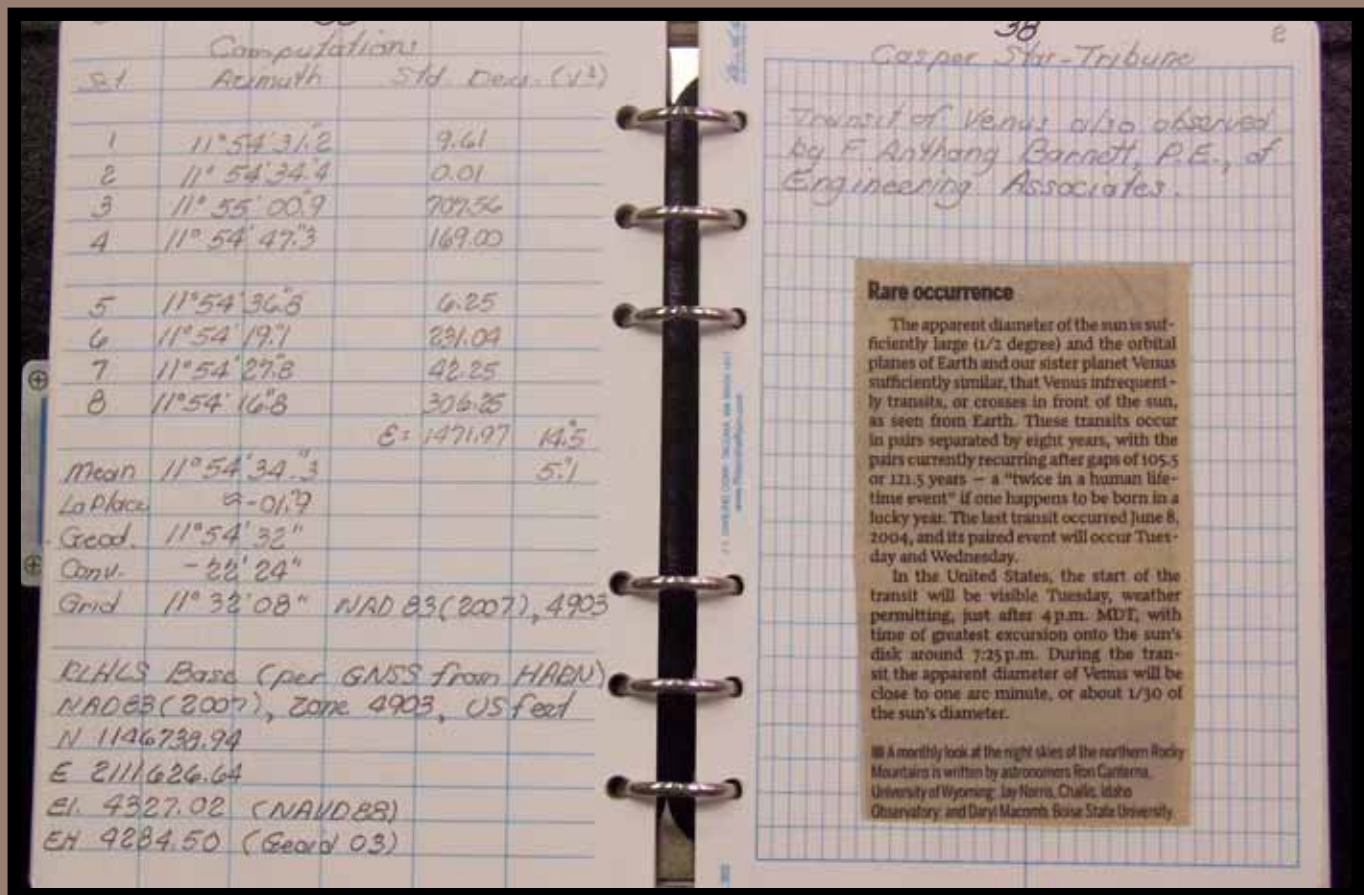 Computations
Set Azimuth Std. Dev. (V²)
1 11°54'31."2 9.61
2 11°54'34."4 0.01
3 11°55'00."9 707.56
4 11°54'47."3 169.00
5 11°54'36."8 6.25
6 11°54'19."1 231.04
7 11°54'27."8 42.25
8 11°54'16."8 306.25
Σ= 1471.97 14."5
Mean 11°54'34."3 5."1
LaPlace -01."9
Geod. 11°54'32"
Conv. -22'24"
Grid 11°32'08" NAD 83(2007), 4903
RLHLS Base (per GNSS from HARN)
NAD83(2007), Zone 4903, US feet
N 1146739.94
E 2111626.64
El. 4327.02 (NAVD88)
EH 4284.50 (Geoid 03)
38
Casper Star-Tribune
Transit of Venus also observed
by F. Anthony Barnett, P.E., of
Engineering Associates.
Rare occurrence
The apparent diameter of the sun is suf-
ficiently large (1/2 degree) and the orbital
planes of Earth and our sister planet Venus
sufficiently similar, that Venus infrequent-
ly transits, or crosses in front of the sun,
as seen from Earth. These transits occur
in pairs separated by eight years, with the
pairs currently recurring after gaps of 105.5
or 121.5 years — a “twice in a human life-
time event” if one happens to be born in a
lucky year. The last transit occurred June 8,
2004, and its paired event will occur Tues-
day and Wednesday.
In the United States, the start of the
transit will be visible Tuesday, weather
permitting, just after 4 p.m. MDT, with
time of greatest excursion onto the sun's
disk around 7:25 p.m. During the tran-
sit the apparent diameter of Venus will be
close to one arc minute, or about 1/30 of
the sun's diameter.
A monthly look at the night skies of the northern Rocky
Mountains is written by astronomers Ron Canterna,
University of Wyoming; Jay Norris, Challis, Idaho
Observatory; and Daryl Macomb, Boise State University.